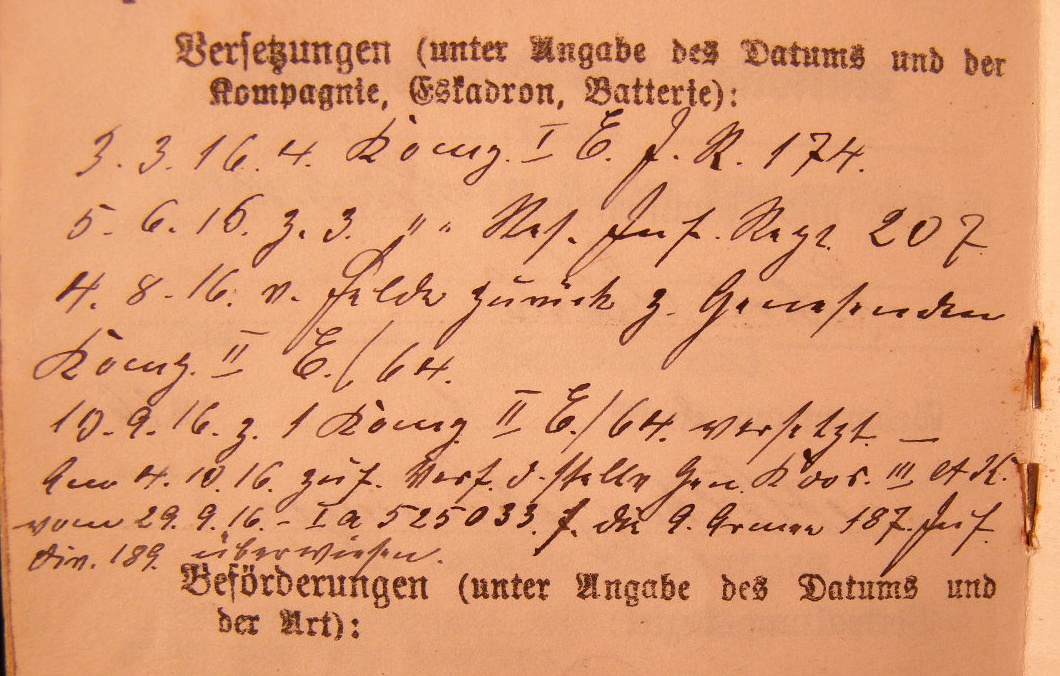 Versetzungen (unter Angabe des Datums und der
Kompagnie, Eskadron, Batterie):
3. 3. 16. 4. Komp. I E. J. R. 174.
5. 6. 16. z. 3. " " Res. Inf. Regt. 207
4. 8. 16. v. Felde zurück z. Genesenden
Komp. II E./64.
10. 9. 16. z. 1 Komp. II E./64. versetzt. —
Am 4. 10. 16. zuf. Verf. d. stellv Gen. Kdos. III A.K.
vom 29. 9. 16. - Ia 525033. f. die 9. Armee 187. Inf.
Div. 189. überwiesen.
Beförderungen (unter Angabe des Datums und
der Art):